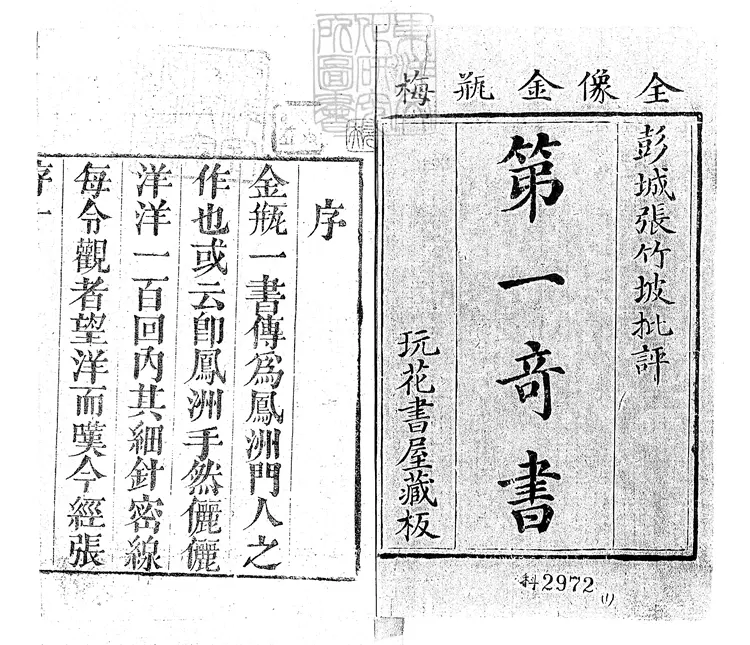 全像金瓶梅
彭城張竹坡批評
第一奇書
玩花書屋藏板
科2972
(1)
序
金瓶一書傳爲鳳洲門人之
作也或云卽鳳洲手然儷儷
洋洋一百回內其細針密線
每令觀者望洋而嘆今經張
序一